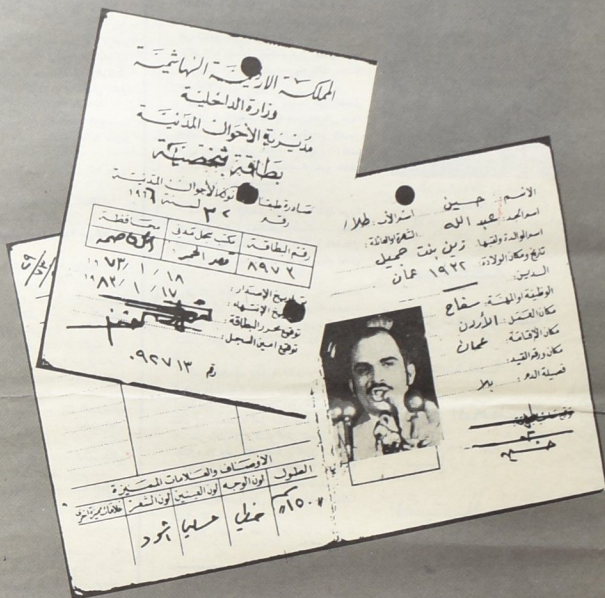 المملكة الأردنية الهاشمية
وزارة الداخلية
مديرية الأحوال المدنية
بطاقة شخصية
صادرة طبقا الأحوال المدنية
رقم ٣٢ لسنة ١٩٦٦
رقم البطاقة مكتب سجل مدني محافظة
٨٩٧٢ قصر الحمر العاصمة
تاريخ الإصدار: ١٨ / ١ / ١٩٧٣
تاريخ الإنتهاء: ١٧ / ١ / ١٩٨٣
توقيع محرر البطاقة:
توقيع امين السجل:
رقم ٠٩٢٧١٣
الاسم: حسين اسم الأب: طلال
اسم الجد: عبد الله الشهرة أو العائلة:
اسم الوالدة ولقبها: زين بنت جميل
تاريخ ومكان الولادة: ١٩٣٢ عمان
الدين:
الوظيفة أو المهنة: سفاح
مكان العمل: الأردن
مكان الإقامة: عمان
مكان ورقم القيد:
فصيلة الدم: بلا
حسين
الاوصاف والعلامات المميزة
الطول لون الوجه لون العينين لون الشعر
١٥٠ سم حنطي عسليا اسود